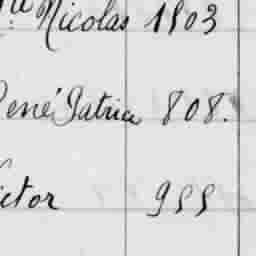 Nicolas 1903
René Patrice 808.
ictor 955